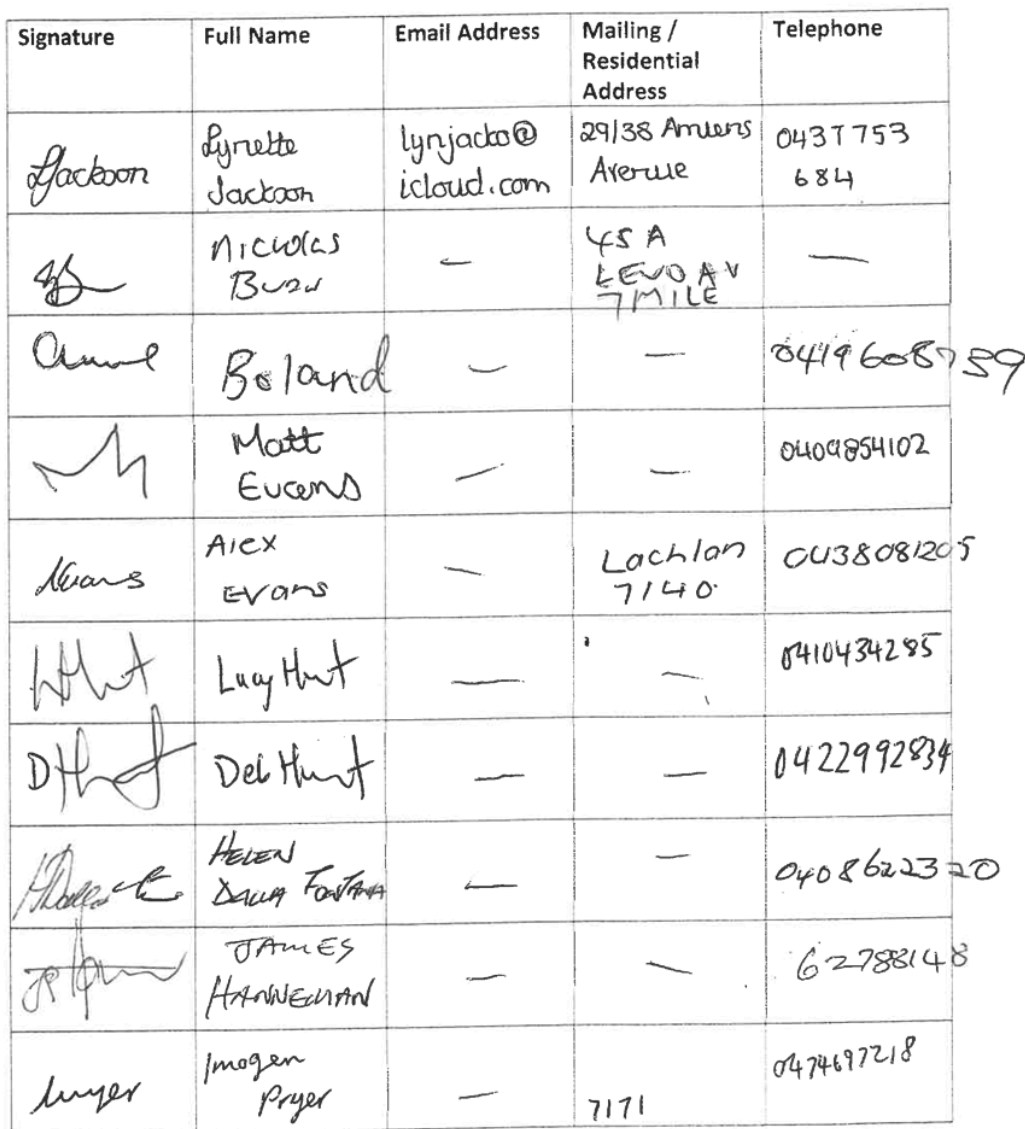 Signature Full Name Email Address Mailing / Residential Address Telephone
Jackson Lynette Jackson lynjacko@icloud.com 29/38 Amiens Avenue 0437753 684
Nicholas — 45 A LEVO AV 7 MILE —
Anne Boland — — 0419608759
Matt Evans — — 0409854102
Evans Alex Evans — Lachlan 7140. 0438081205
LHunt Lucy Hunt — — 0410434285
DHunt Deb Hunt — — 0422992834
HELEN DALLA FONTANA — — 0408622320
JAMES HANNEMAN — — 62788148
Imogen Pryer — 7171 0474697218